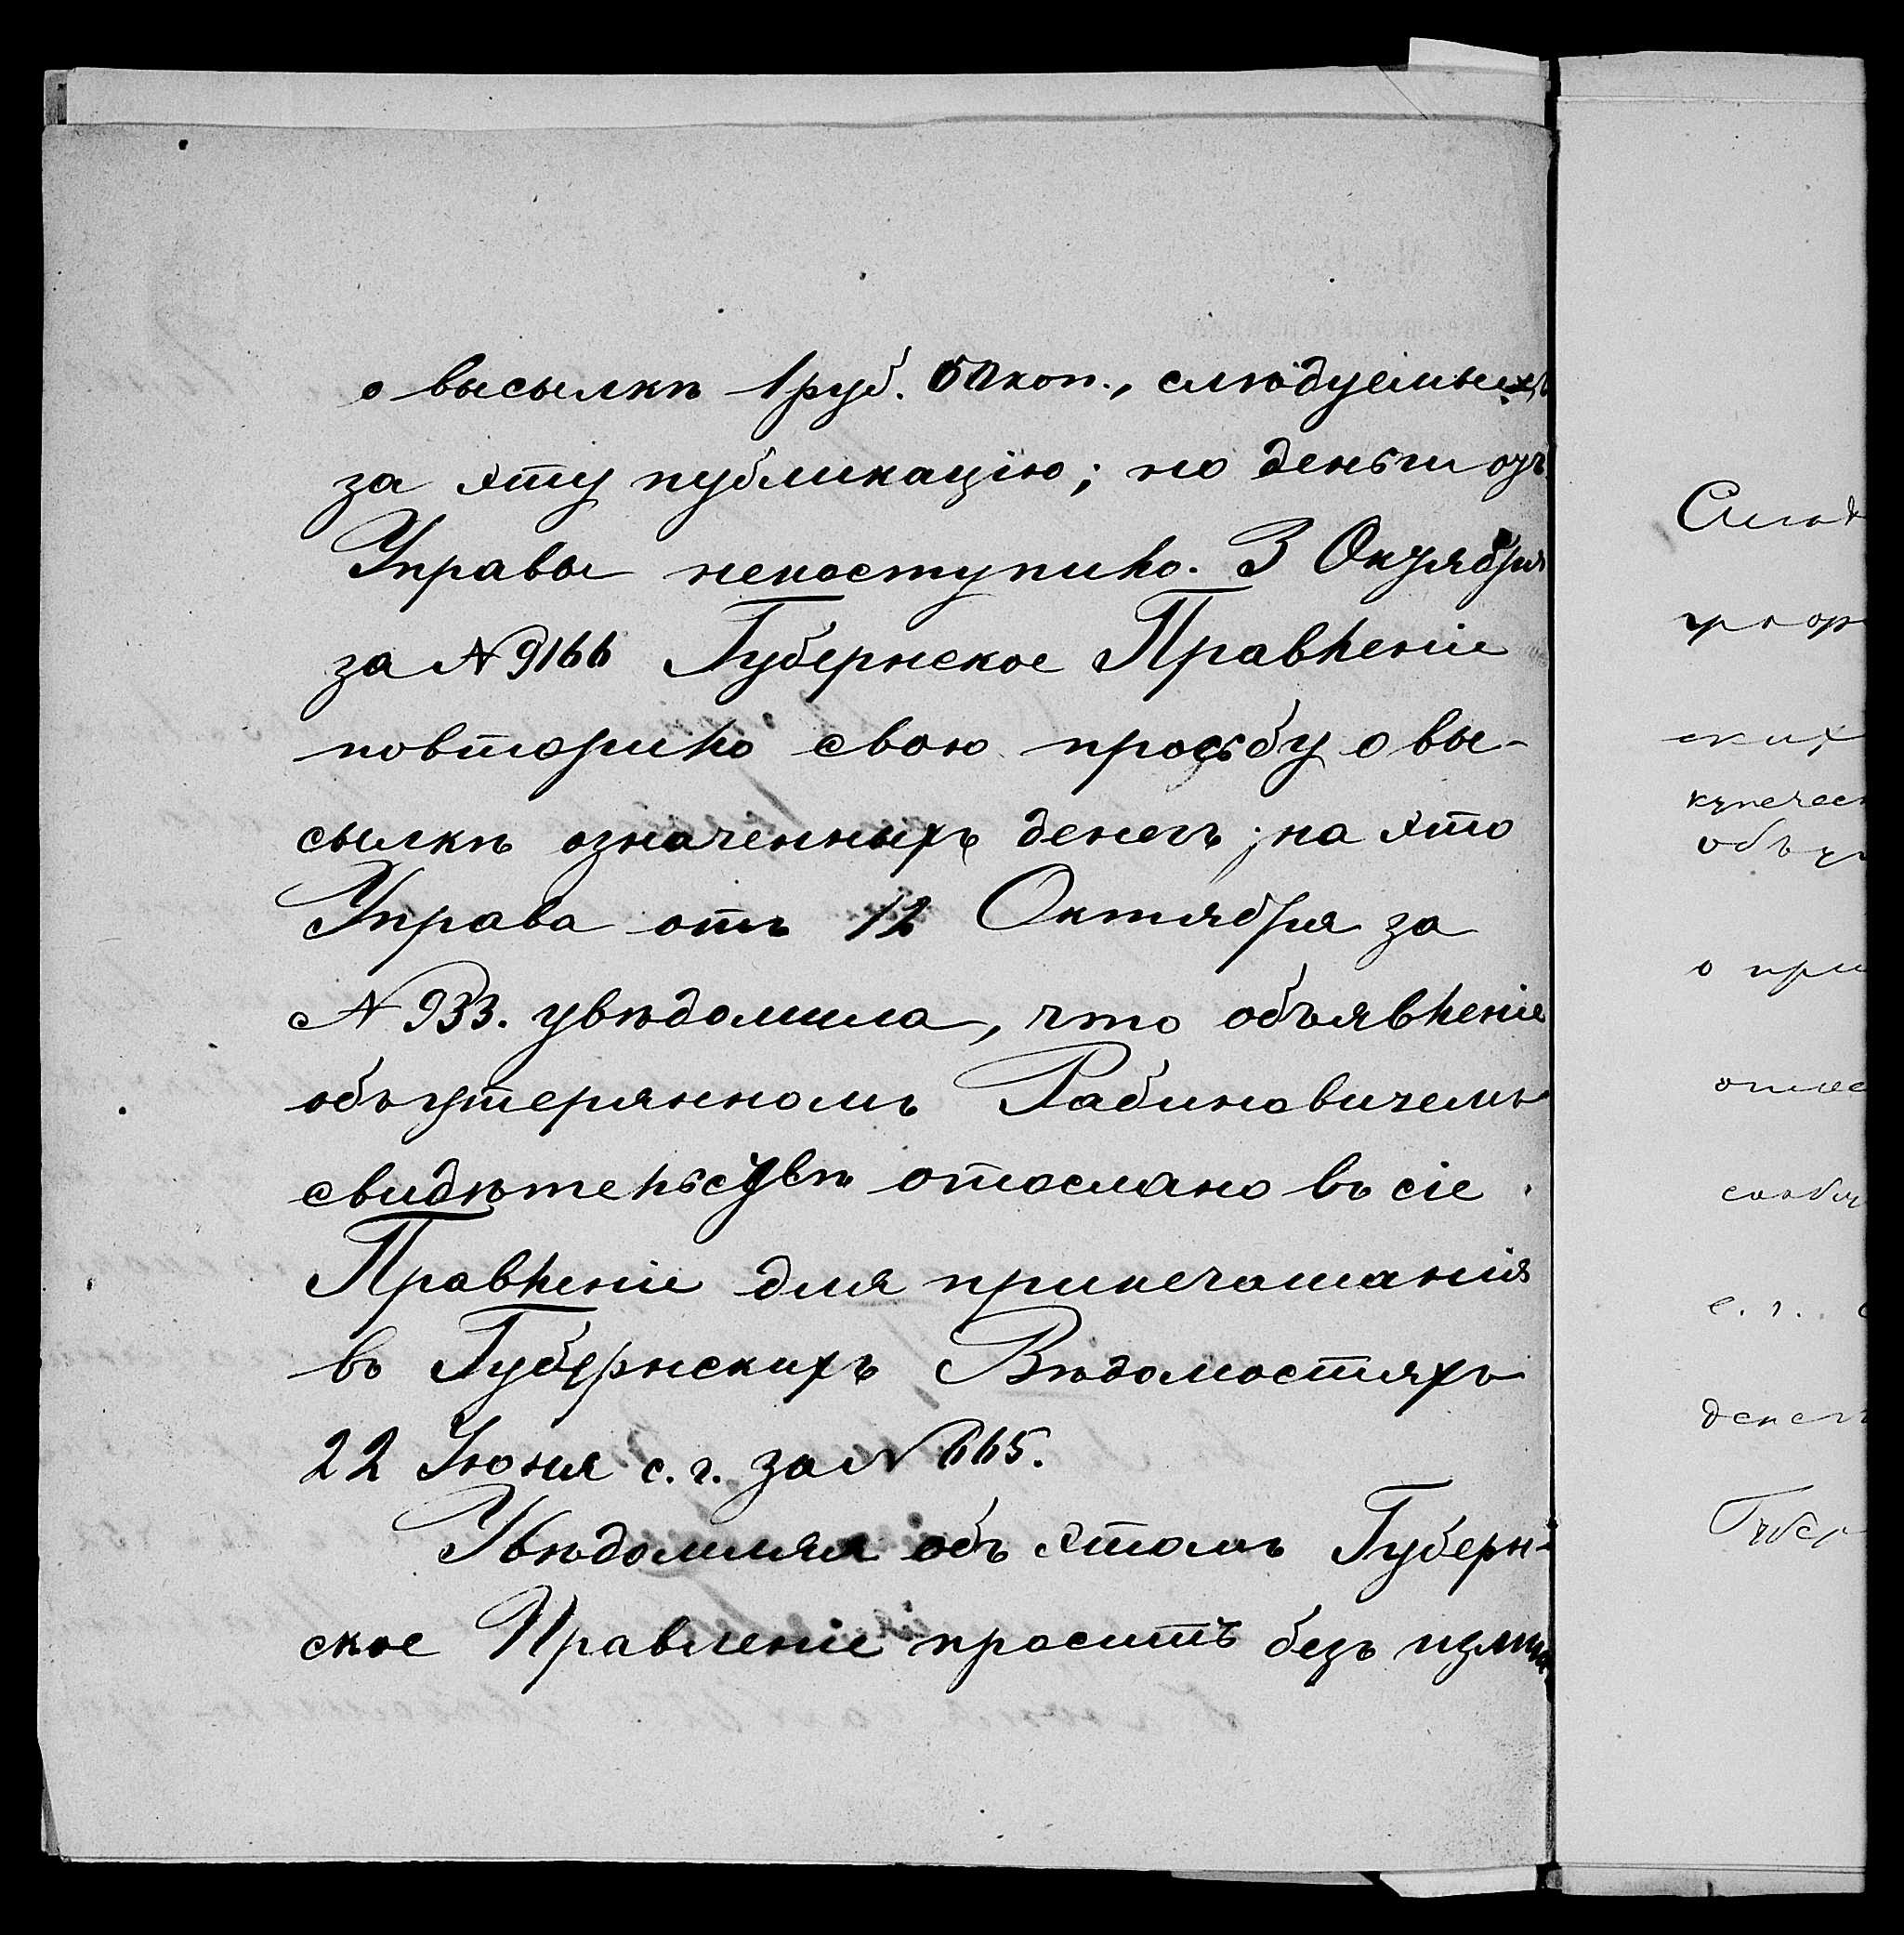 о высылкѣ 1 руб. 50 коп., слѣдуемыхъ
за эту публикацію; но деньги отъ
Управы непоступило. 3 Октября
за № 9166 Губернское Правленіе
повторило свою просьбу о вы-
сылкѣ означенныхъ денегъ; на это
Управа отъ 12 Октября за
№ 933. увѣдомила, что объявленіе
объ утерянномъ Рабиновичемъ
свидѣтельствѣ отослано въ сіе
Правленіе для припечатанія
въ Губернскихъ Вѣдомостяхъ
22 Іюня с. г. за № 665.
Увѣдомляя объ этомъ Губерн-
ское Правленіе проситъ безъ
ских
купечес
о при
с. г.
денег
Губер